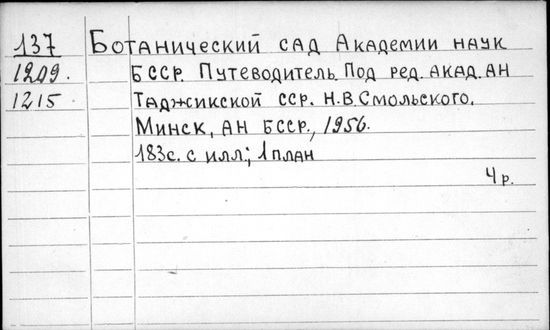 137 Ботанический сад Академии наук
1209. БССР. Путеводитель. Под ред. акад. АН
1215. Таджикской ССР. Н.В.Смольского.
Минск, АН БССР, 1956.
183с. с илл; 1 план
4 р.